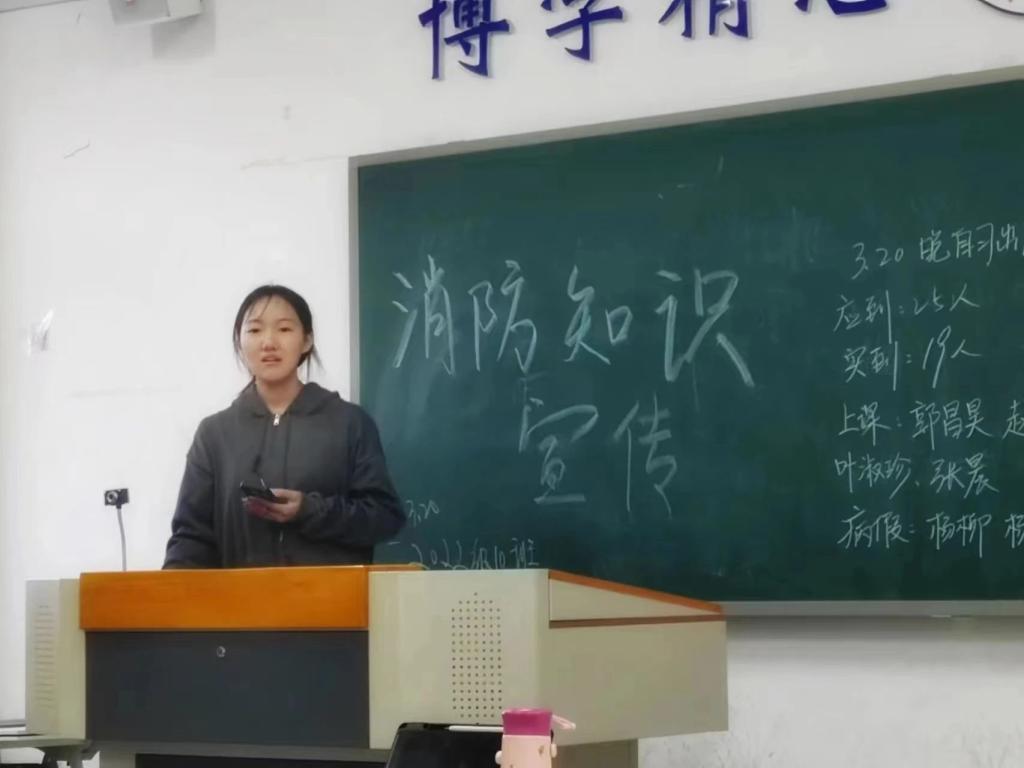 博学精思
消防知识
宣传
3.20
2022级10班
3.20 晚自习出
应到:25人
实到:19人
上课:郭昌昊 赵
叶淑珍、张晨
病假:杨柳 杨